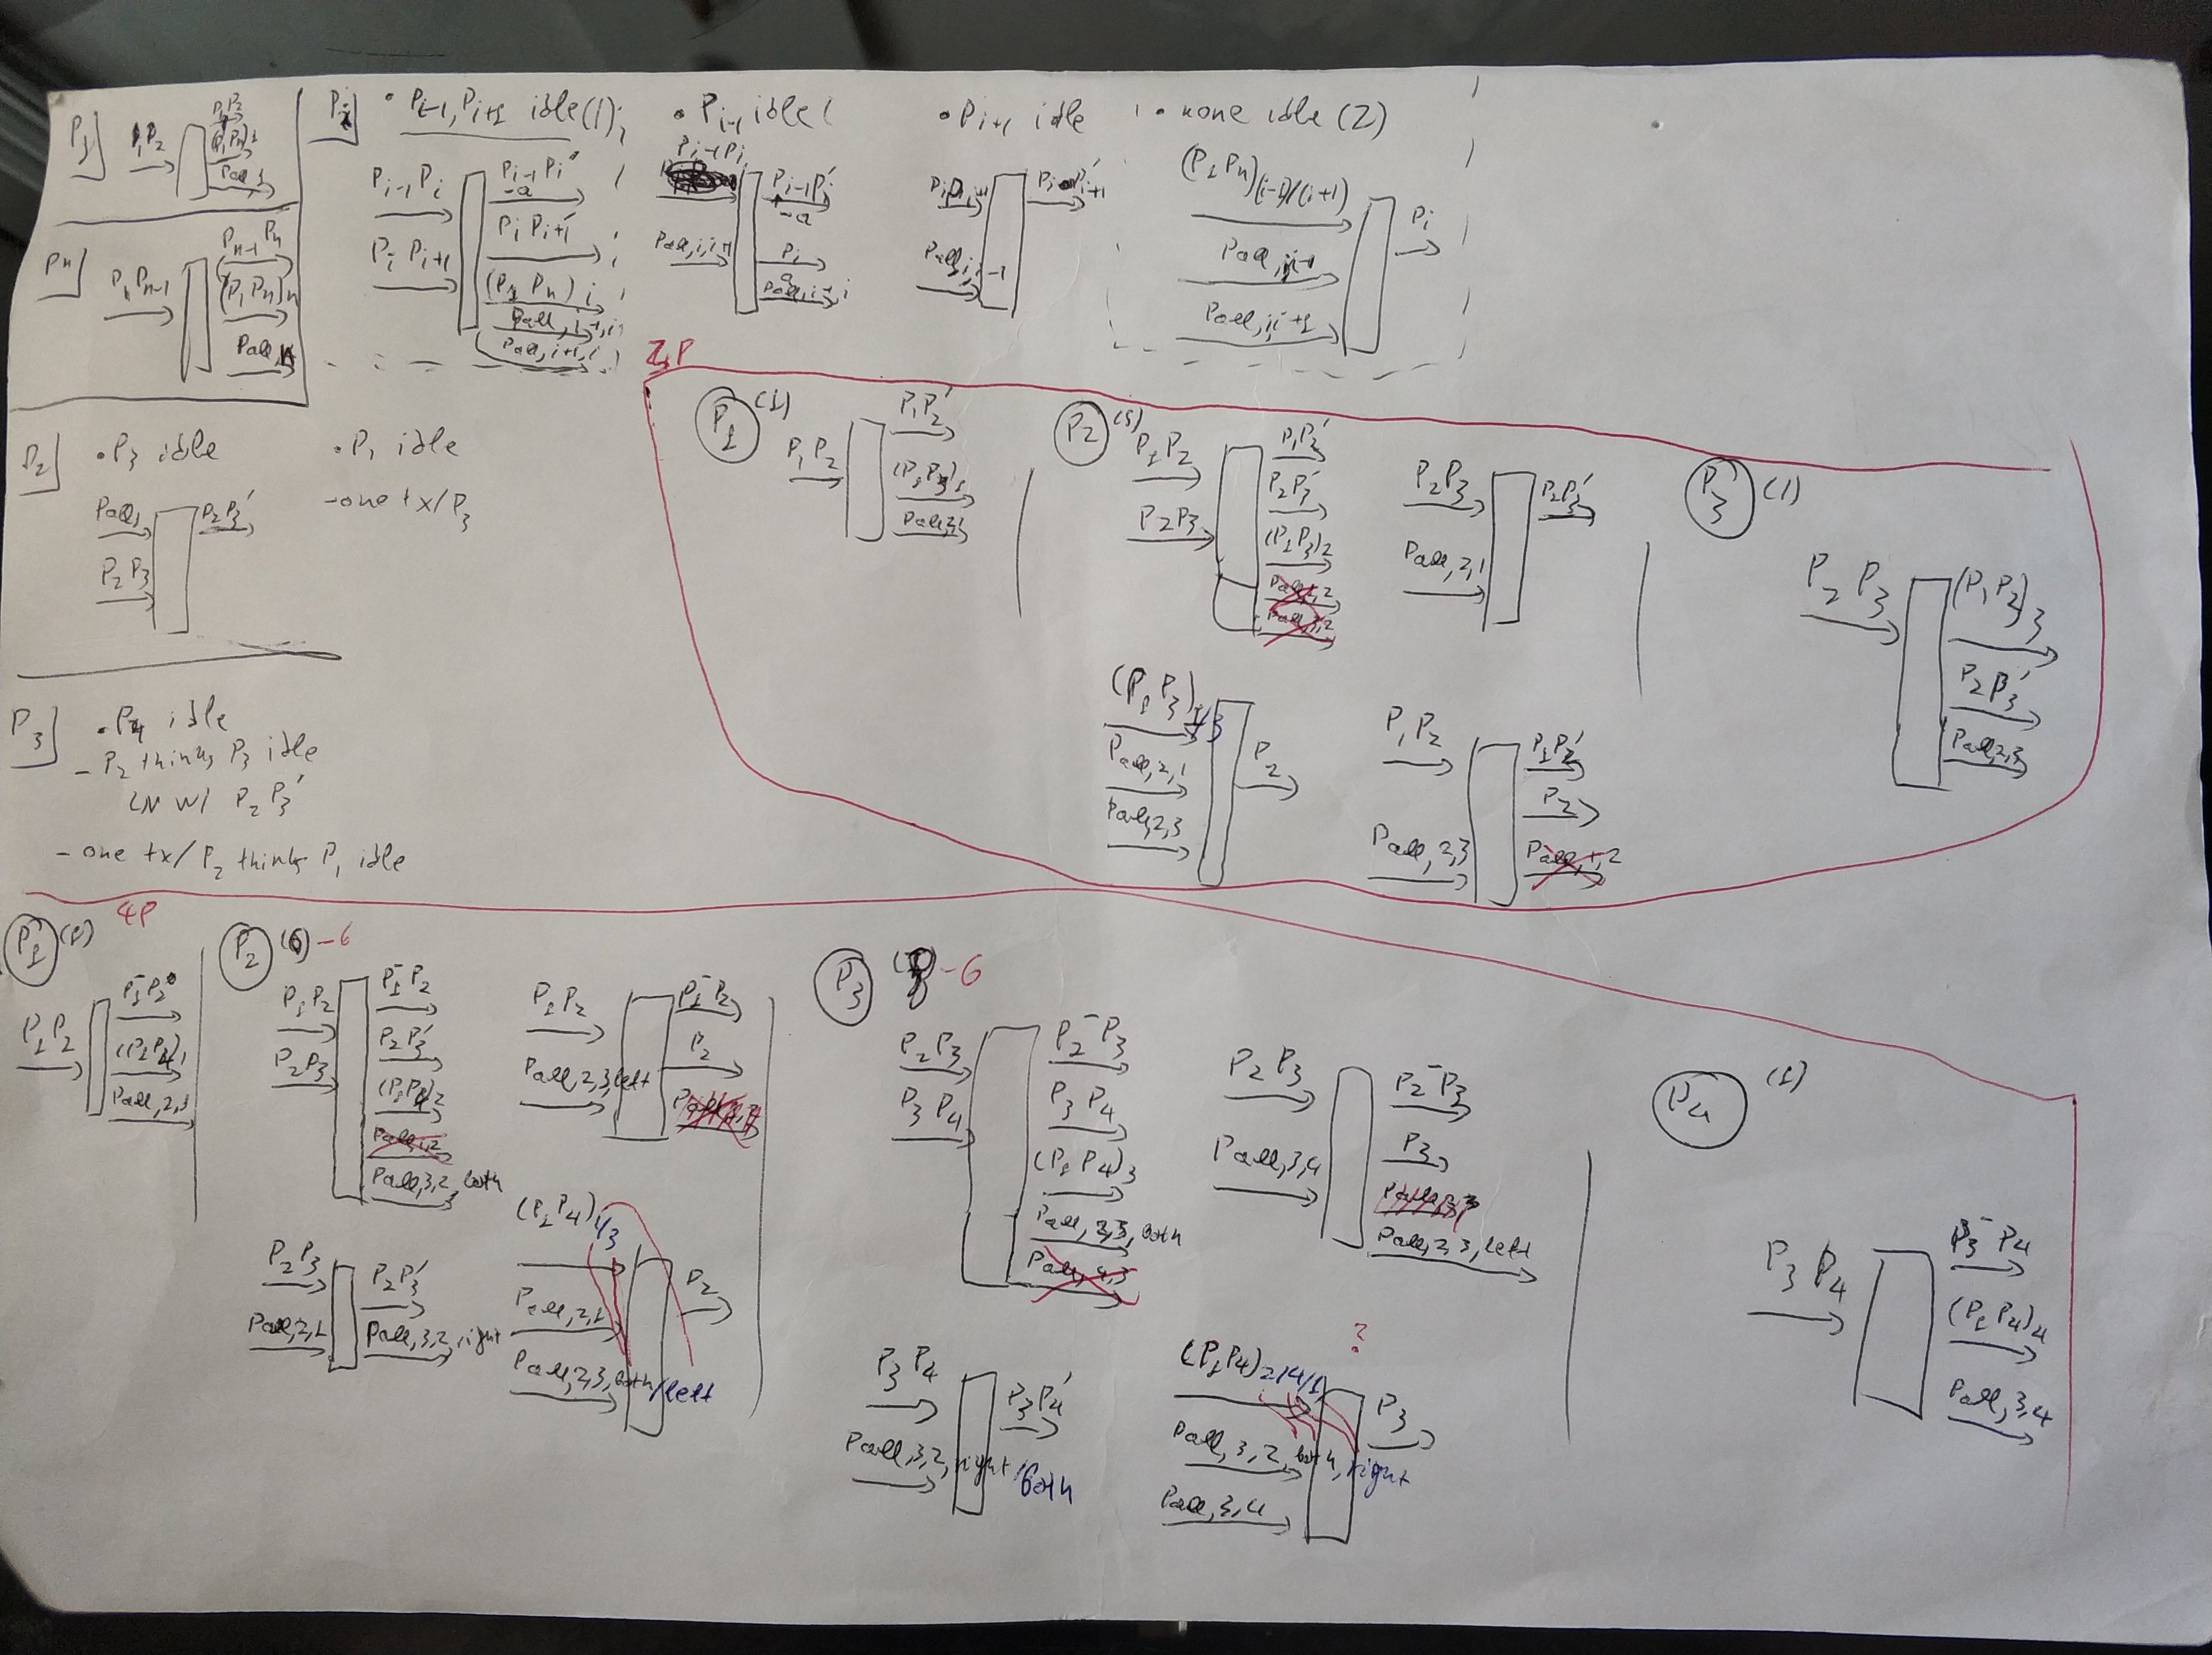 P1
P1P2
Pn
PnPn-1
Pn-1Pn
(P1Pn)n
Pall,n
Pi
• Pi-1, Pi+1 idle (1);
Pi-1Pi
PiPi+1
Pi-1Pi'
-a
PiPi+1'
(P1Pn)i
Pall,i-1,i
Pall,i+1,i
• Pi-1 idle
Pi-1Pi
Pi-1Pi'
-a
Pi
• Pi+1 idle
• none idle (2)
(P1Pn)(i-1)/(i+1)
Pall,i,i-1
Pall,i,i+1
Pi
P2
• P3 idle
Pall,1
P2P3
P2P3'
• P1 idle
- one tx/P3
P3
• P4 idle
- P2 thinks P3 idle
w/ P2P3'
- one tx/P2 thinks P1 idle
P1 (1)
P1P2
P1P2'
P2
P1P2
P2P3
P2P3'
(P1P3)2
Pall,1,2
Pall,3,2
P2P3
Pall,2,1
P2P3'
(P1P3)1/3
Pall,2,1
Pall,2,3
P2
P1P2
Pall,2,3
P1P2'
P2
Pall,1,2
P3 (1)
P2P3
P2P3'
Pall,2,3
4P
P1 (1)
P1P2
(P1P4)1
Pall,2,1
P2 -6
P1P2
P2P3
P1-P2
P2P3'
(P1P4)2
Pall,1,2
Pall,3,2,both
P1P2
Pall,2,3,left
P1-P2
P2
P2P3
Pall,2,1
P2P3'
Pall,3,2,right
(P1P4)1/3
Pall,2,1
Pall,2,3,both/left
P2
P3 -6
P2P3
P3P4
P2-P3
P3P4
(P1P4)3
Pall,2,3,both
Pall,4,3
P2P3
Pall,3,4
P2-P3
P3
Pall,2,3,left
P3P4
Pall,3,2,right/both
P3P4'
?
(P1P4)2/4/1
Pall,3,2,both,right
Pall,3,4
P3
P4 (1)
P3P4
P3-P4
(P1P4)4
Pall,3,4